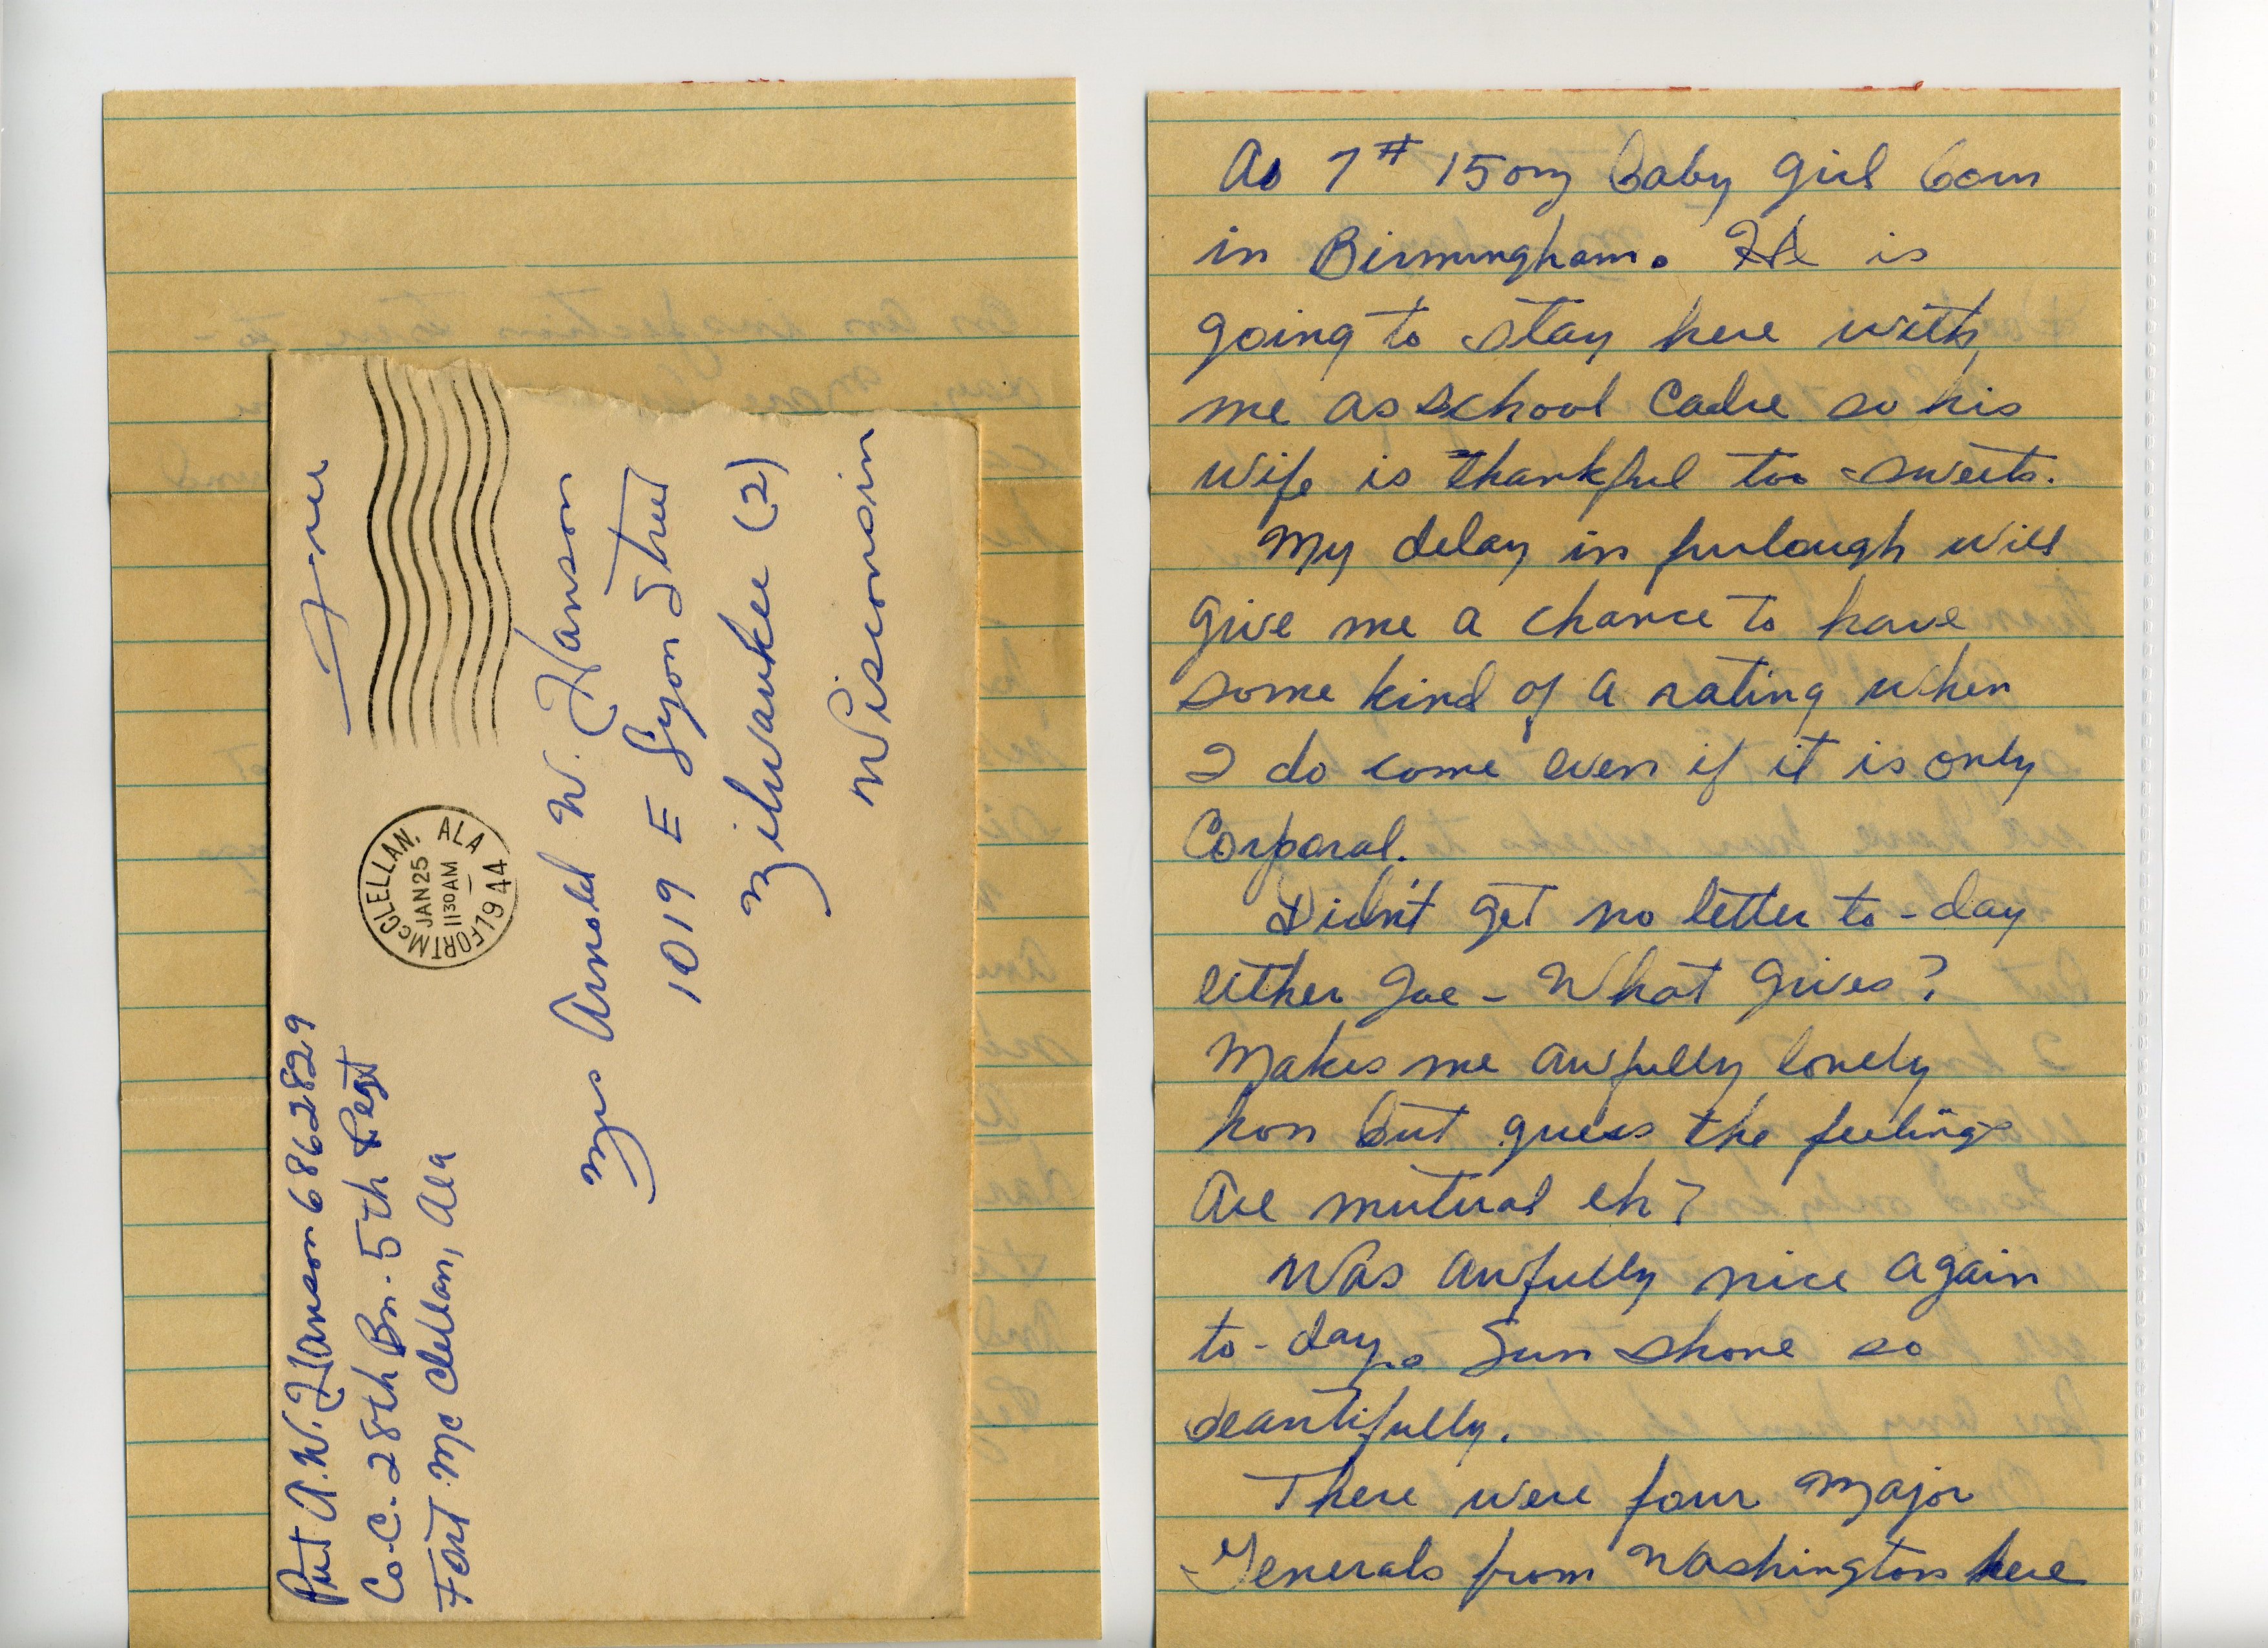 Pvt A.W. Hanson 6862829
Co-C-28th Bn-5th Regt
Fort McClellan, Ala
Free
FORT McCLELLAN, ALA
JAN 25
11 30 AM
1944
Mrs Arnold W. Hanson
1019 E Lyon Street
Milwaukee (2)
Wisconsin
on an inspection tour to-
day.
A 7# 15 ozs baby girl born
in Birmingham. He is
going to stay here with
me as school Cadre so his
wife is thankful too sweets.
My delay in furlough will
give me a chance to have
some kind of a rating when
I do come even if it is only
Corporal.
Didn't get no letter to-day
either Joe - What gives?
Makes me awfully lonely
hon but guess the feelings
are mutual eh?
Was awfully nice again
to-day. Sun shone so
beautifully.
There were four Major
Generals from Washington here